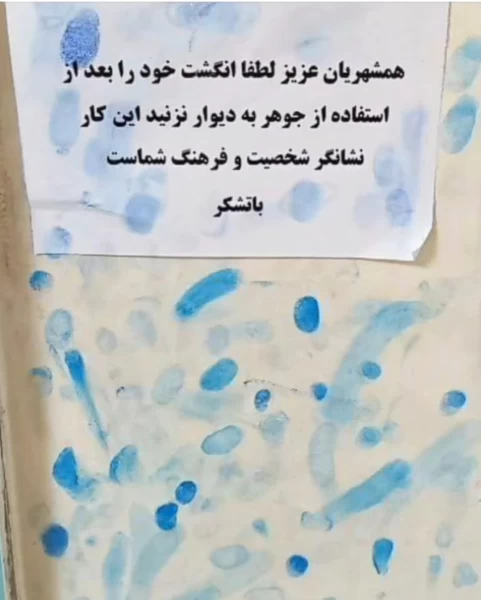 همشهریان عزیز لطفا انگشت خود را بعد از
استفاده از جوهر به دیوار نزنید این کار
نشانگر شخصیت و فرهنگ شماست
باتشکر